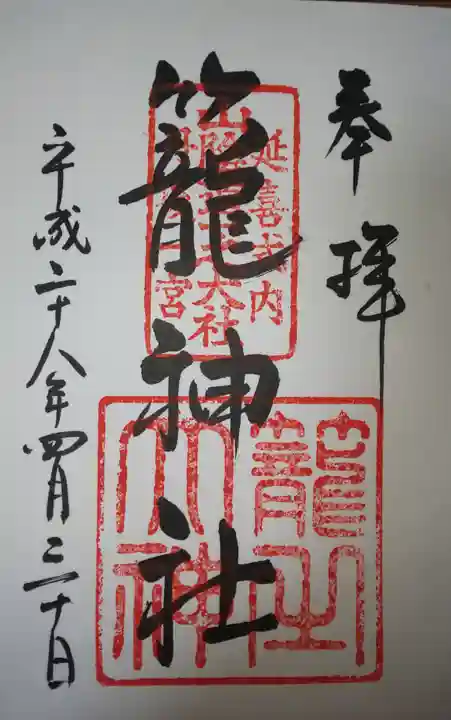 奉拝
延喜式内
山陰道一之大社
籠神社
籠之大神
平成二十八年四月二十日